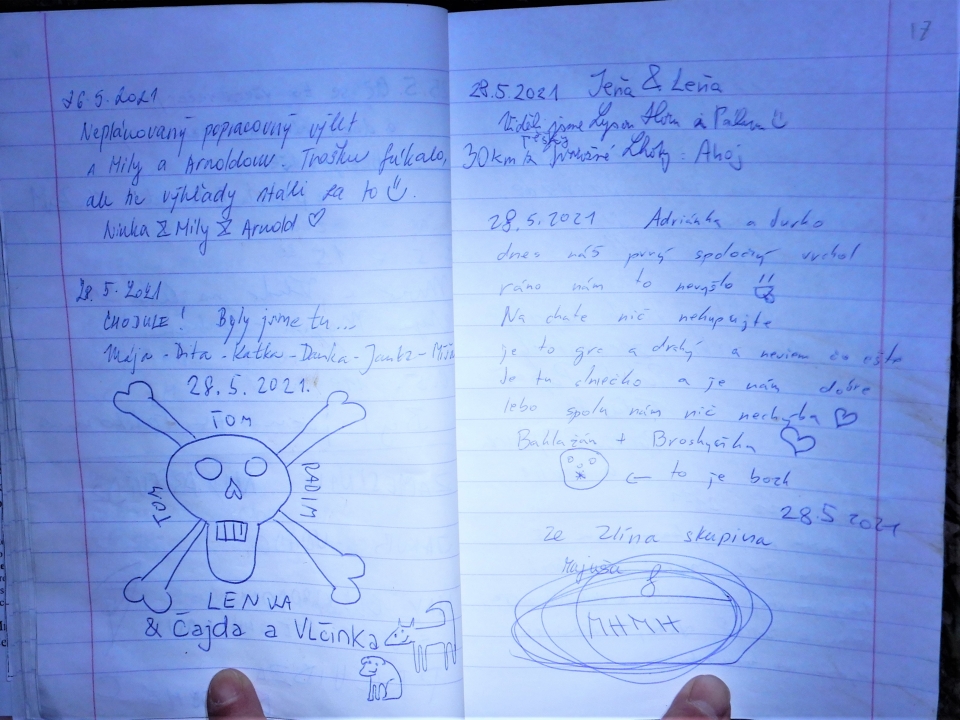 26.5.2021
Neplánovaný popracovný výlet
s Mily a Arnoldom. Trošku fúkalo,
ale tie výhľady stáli za to
Ninka & Mily & Arnold ♡
28.5.2021
Byly jsme tu...
Mája - Dita - Katka - Danka -
28.5.2021.
TOM
RADIM
TOM
LENKA
& Čajda a Vlčinka
17
28.5.2021 Jeňa & Leňa
jsme Lysou Horu a
30km Lhoty: Ahoj
28.5.2021 Adriánka a Ďurko
dnes náš prvý spoločný vrchol
ráno nám to nevyšlo
Na chate nič nekupujte
je to grc a drahý a neviem čo ešte
Je tu a je nám dobre
lebo spolu nám nič nechýba ♡
Baklažán + Broskyňka ♡
← to je bozk
28.5 2021
Ze Zlína skupina
MHMH